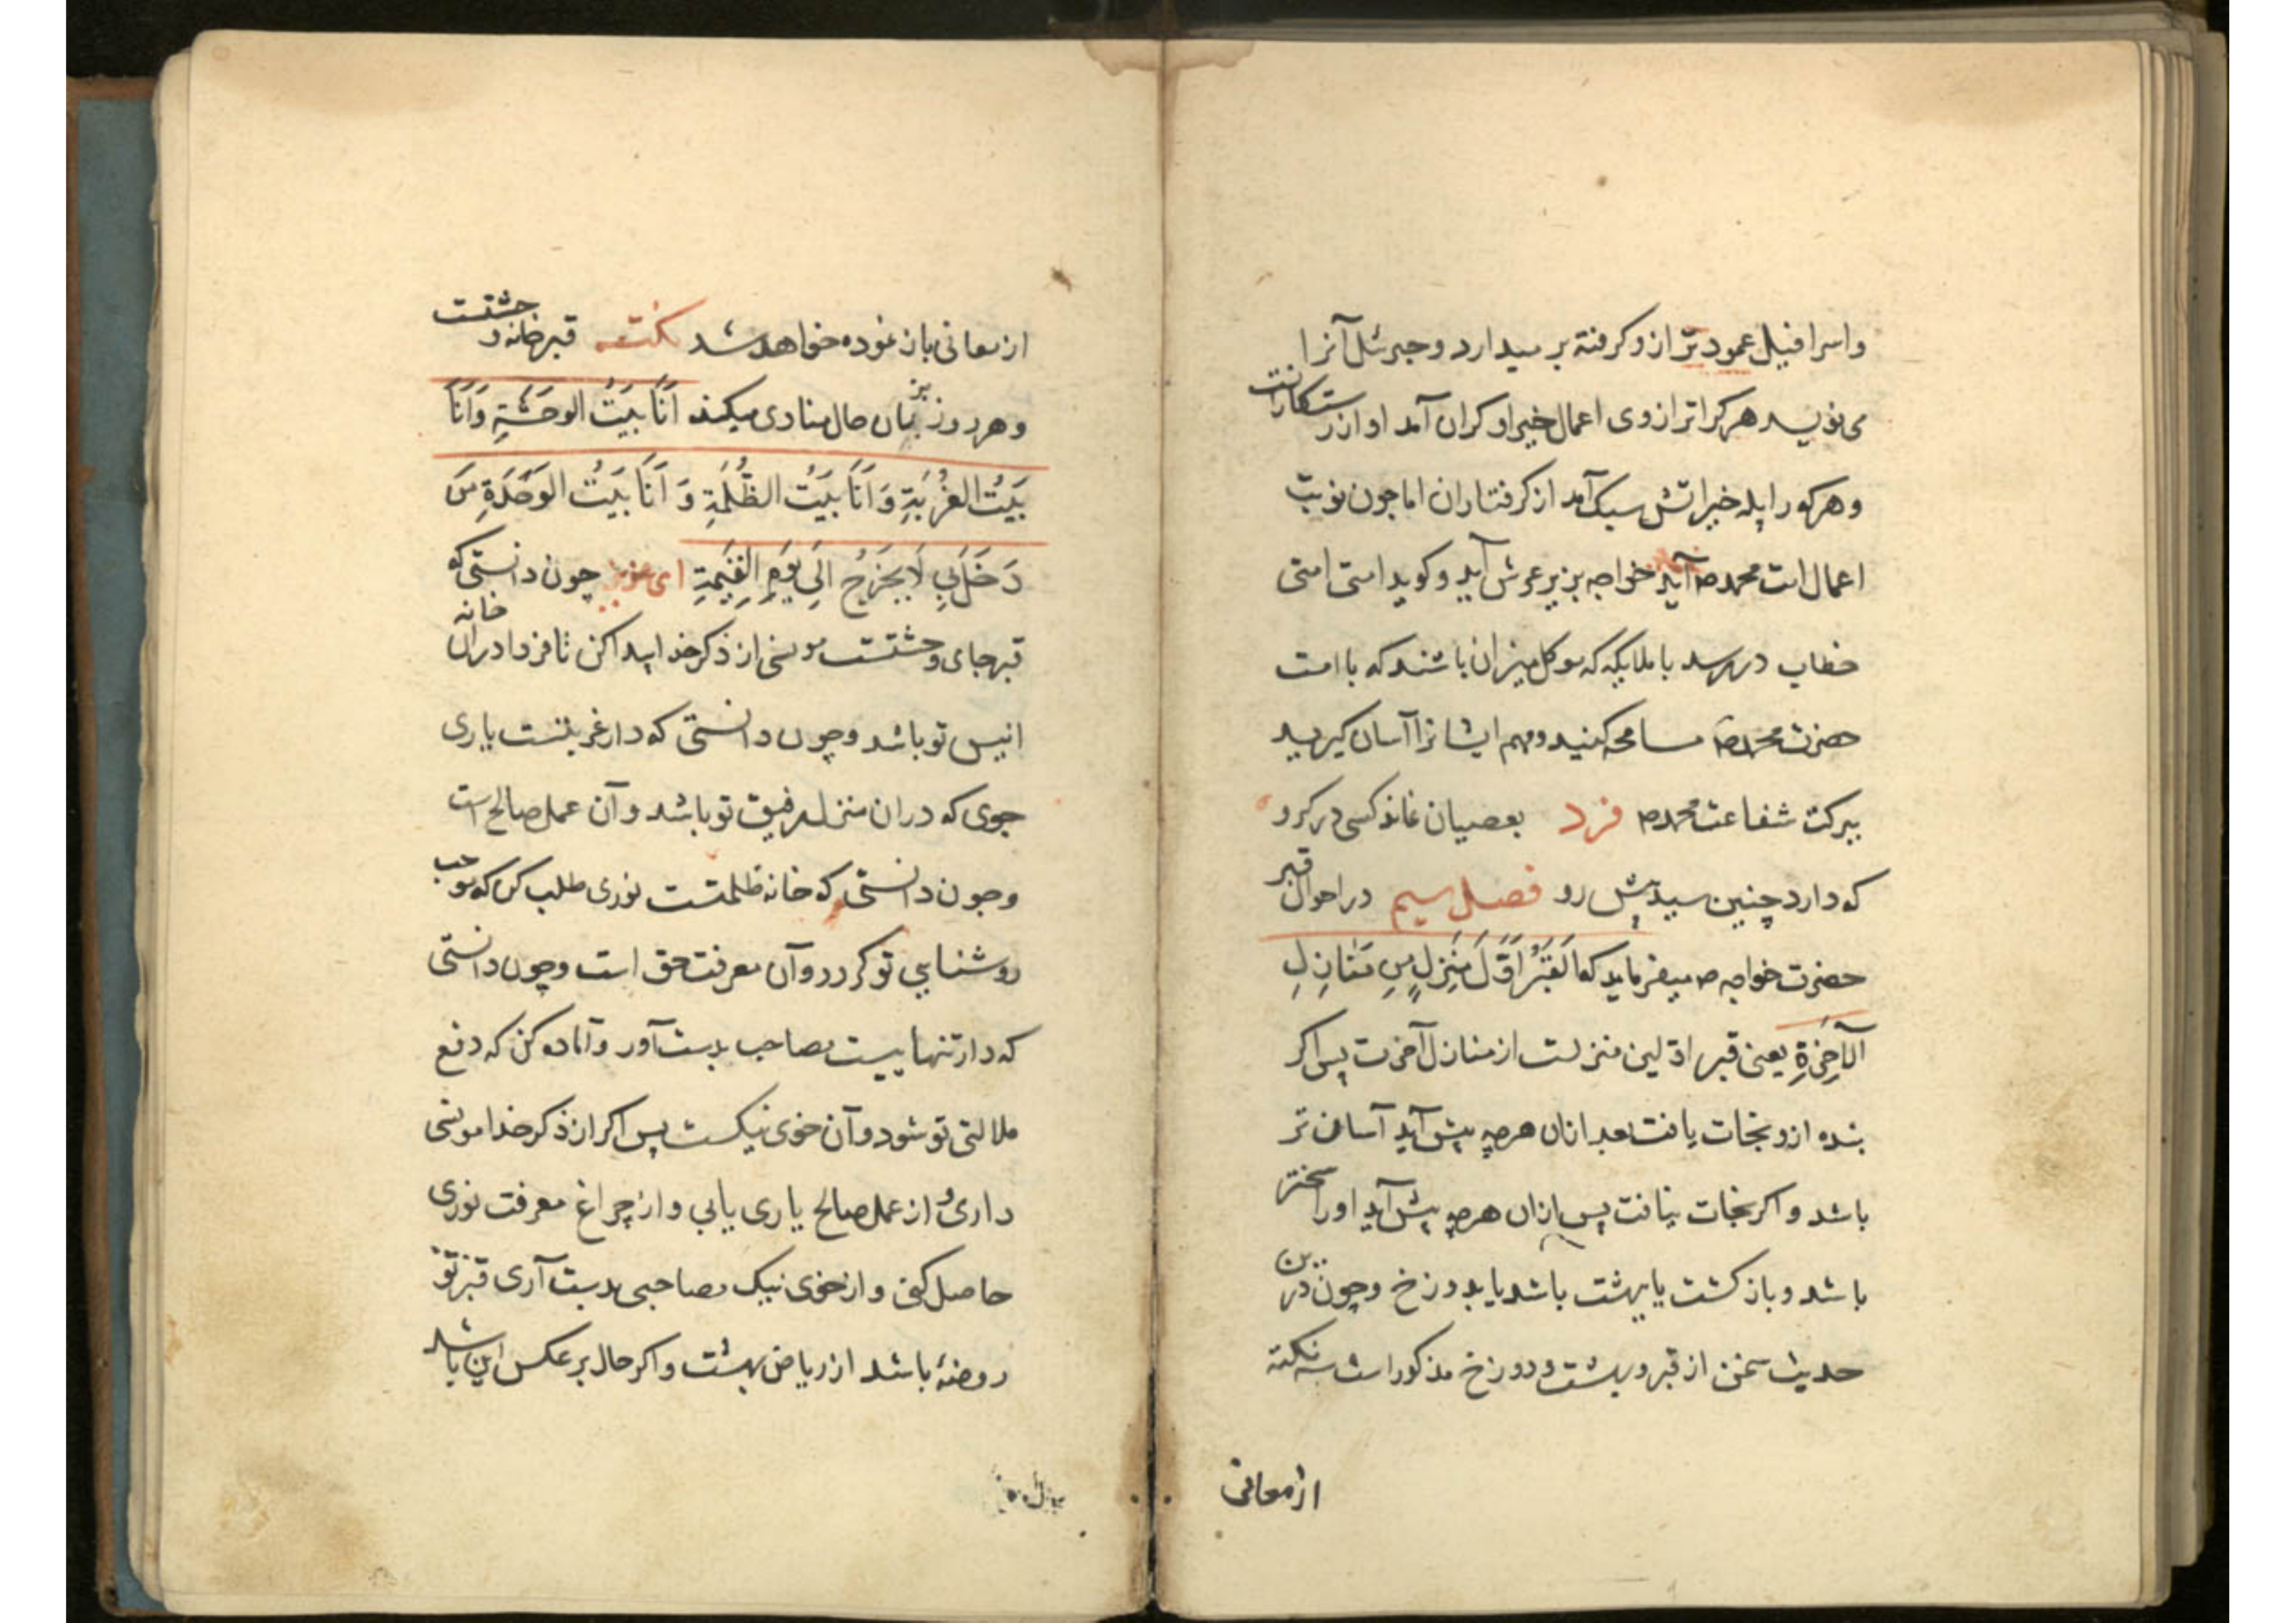 واسرافیل عمود ترازو کرفته بر میدارد و جبرئیل آنرا
می نویسد هرکرا ترازوی اعمال خیر او کران آمد او از رستکارانست
و هرکه را پله خیراتش سبک آمد از کرفتاران اما چون نوبت
اعمال امت محمد ص آید خواجه بزیر عرش آید و کوید امتی امتی
خطاب در رسد با ملایکه که موکل میزان باشند که با امت
حضرت محمد ص مسامحه کنید و مهم ایشانرا آسان کیرید
ببرکت شفاعت محمد ص فرد بعصیان نماند کسی در کرو
که دارد چنین سید پیش رو فصل سیم در احوال قبر
حضرت خواجه ص میفرماید که اَلقَبرُ اَوَّلَ مَنزِلٍ مِن مَنَازِلِ
الآخِرَةِ یعنی قبر اولین منزلست از منازل آخرت پس اکر
بنده ازو نجات یافت بعد ازان هرچه پیش آید آسان تر
باشد و اکر نجات نیافت پس ازان هرچه پیش آید او را سختر
باشد و بازکشت یا بهشت باشد یا بدوزخ و چون درین
حدیث سخن از قبر و بهشت و دوزخ مذکور است سه نکته
از معانی
از معانی باز نموده خواهد شد نکته قبر خانه وحشتست
و هر روز بزبان حال منادی میکند اَنَا بَیتُ الوَحشَةِ وَاَنَا
بَیتُ الغُربَةِ وَ اَنَا بَیتُ الظُّلمَةِ وَ اَنَا بَیتُ الوَحدَةِ مَن
دَخَلَنِي لَا یَخرُجُ اِلَی یَومِ القِیمَةِ ای عزیز چون دانستی که
قبر جای وحشتست مونسی از ذکر خدا پیدا کن تا فردا دران خانه
انیس تو باشد و چون دانستی که دار غربتست یاری
جوی که دران منزل رفیق تو باشد و آن عمل صالح است
و چون دانستی که خانه ظلمتست نوری طلب کن که موجب
روشنایی تو کردد و آن معرفت حق است و چون دانستی
که دار تنهاییست مصاحب بدست آور و آماده کن که دفع
ملالتی تو شود و آن خوی نیکست پس اکر از ذکر خدا مونسی
داری و از عمل صالح یاری یابی و از چراغ معرفت نوری
حاصل کنی و از خوی نیک مصاحبی بدست آری قبر تو
روضهٔ باشد از ریاض بهشت و اکر حال بر عکس این باشد